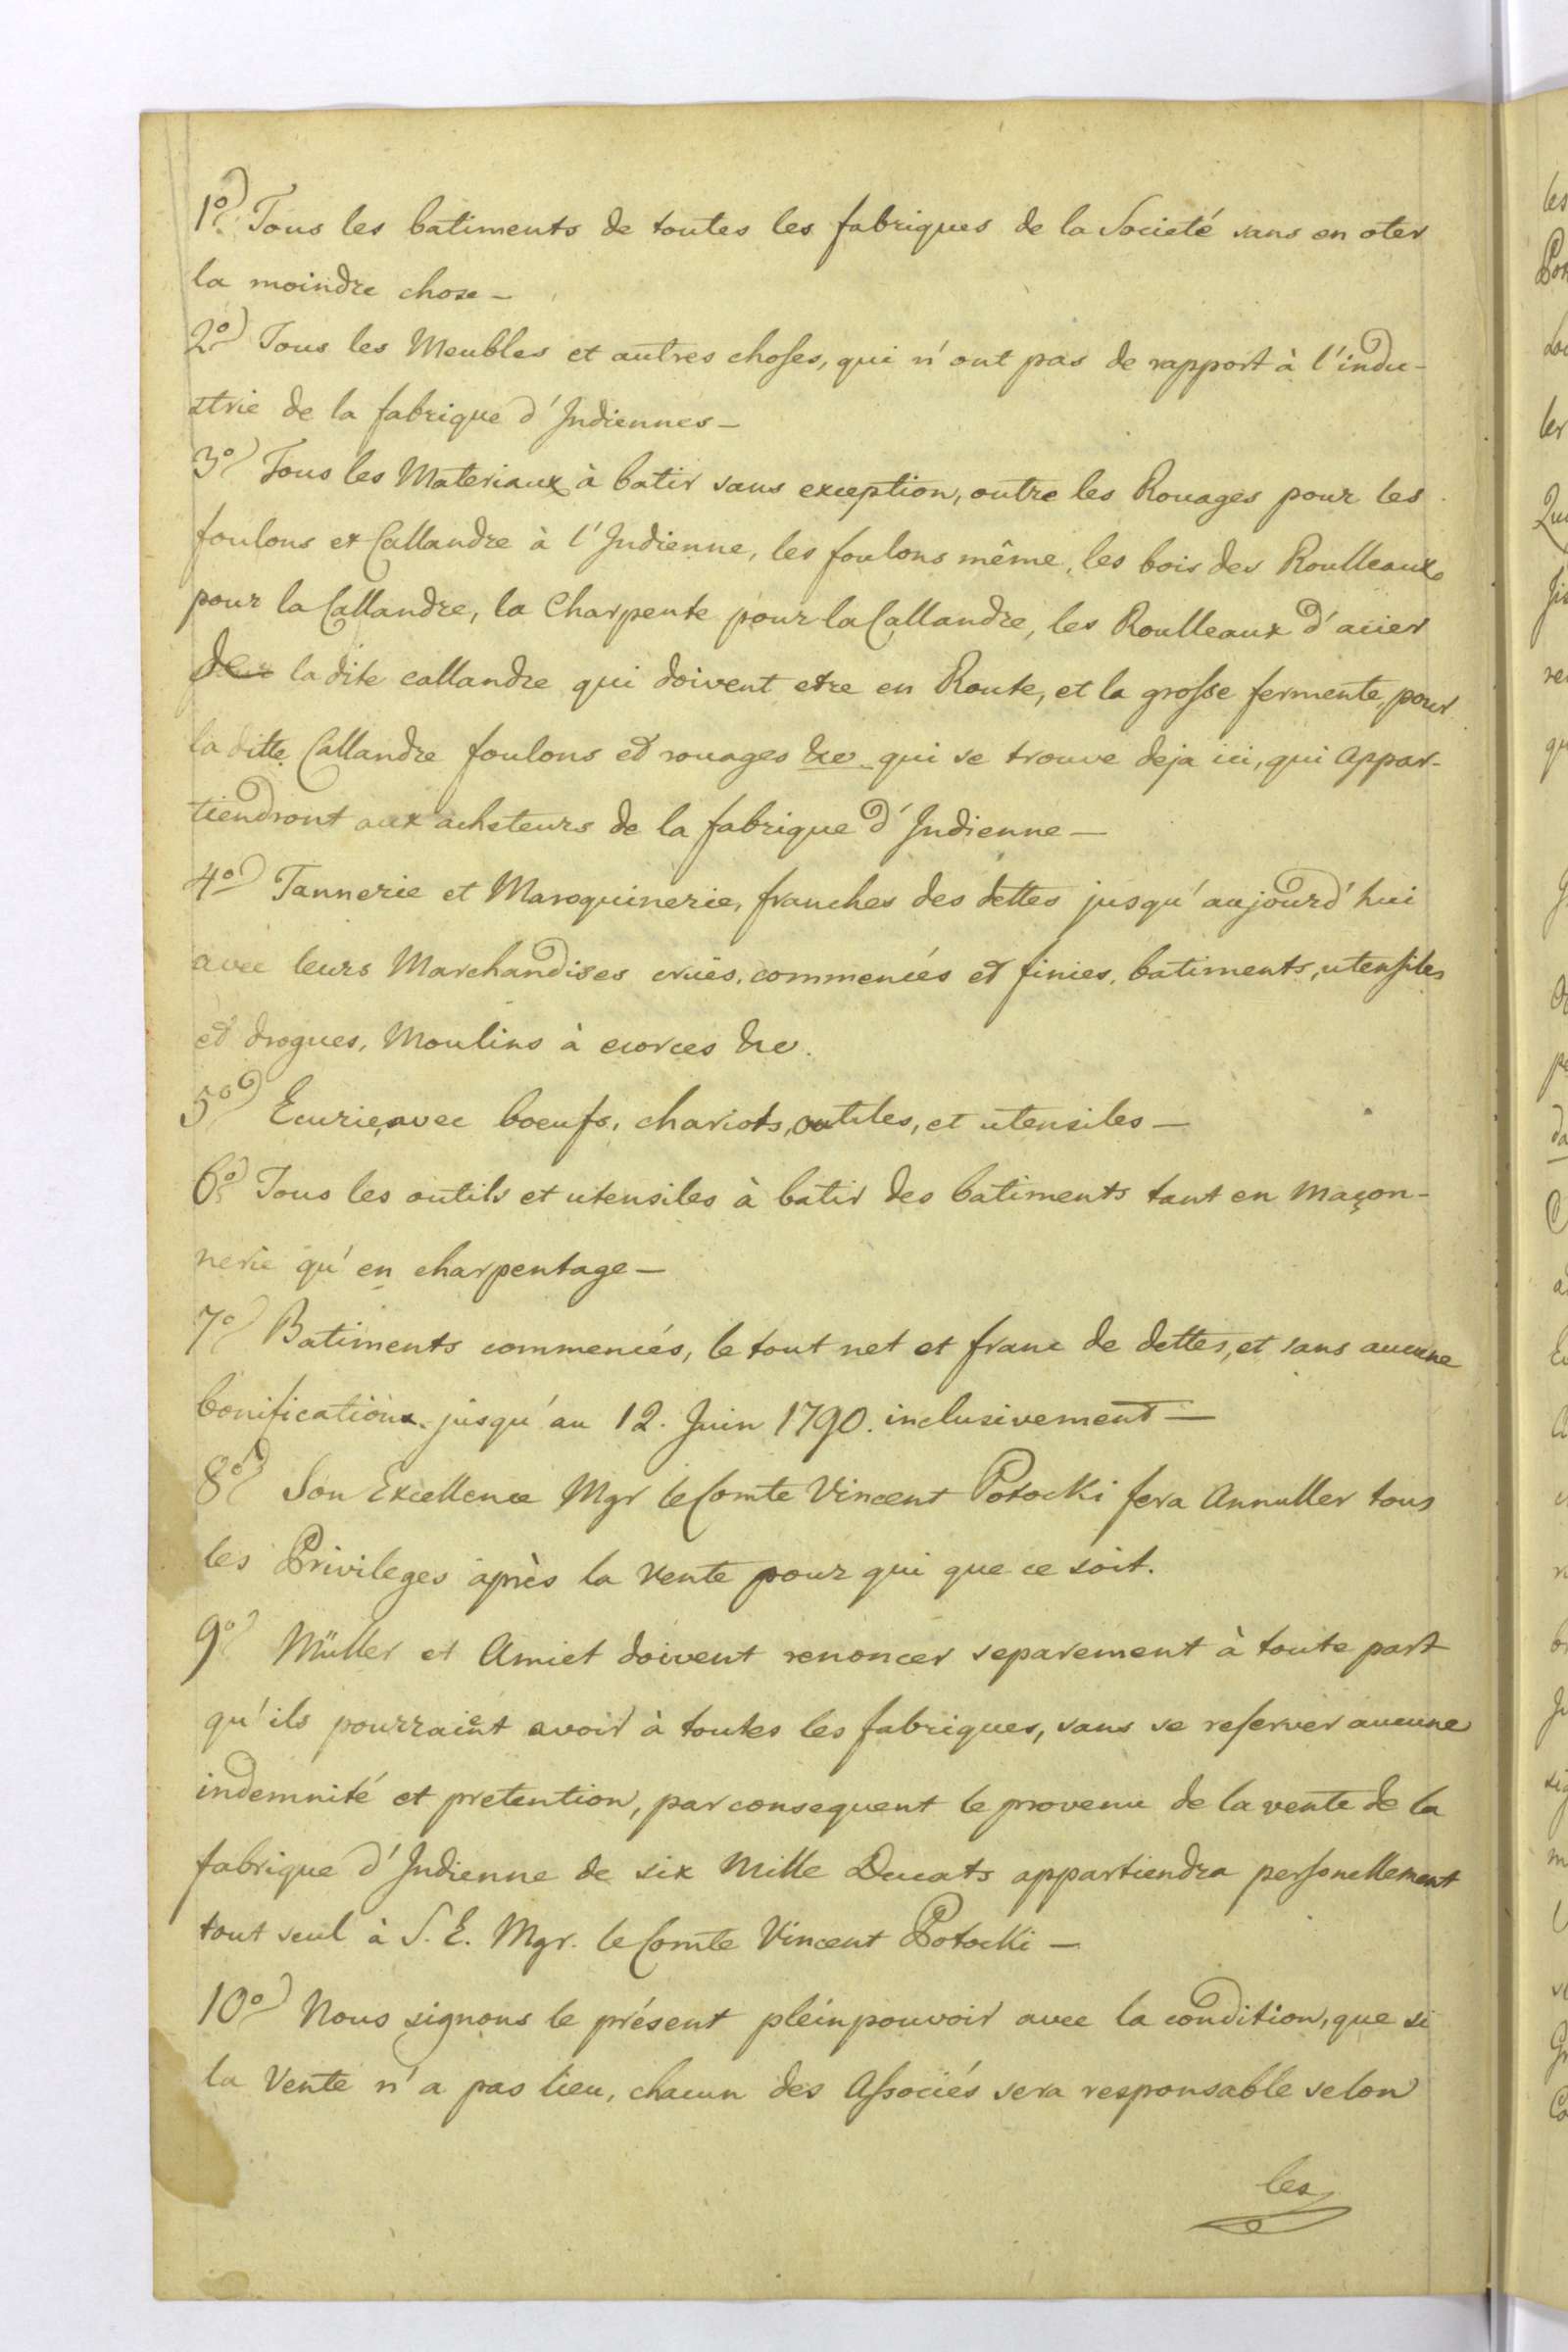 1º) Tous les batiments de toutes les fabriques de la Societé sans en oter
la moindre chose —
2º) Tous les Meubles et autres choses, qui n'ont pas de rapport à l'indu-
strie de la fabrique d'Indiennes —
3º) Tous les Materiaux à batir sans exception, outre les Rouages pour les
foulons et Callandre à l'Indienne, les foulons même, les bois des Roulleaux
pour la Callandre, la Charpente pour la Callandre, les Roulleaux d'acier
la dite callandre qui doivent etre en Route, et la grosse fermente pour
la ditte Callandre foulons et rouages &c qui se trouve deja ici, qui appar-
tiendront aux acheteurs de la fabrique d'Indienne —
4º) Tannerie et Maroquinerie, franches des dettes jusqu'aujourd'hui
avec leurs Marchandises crües, commencés et finies, batiments, utensiles
et drogues, Moulins à ecorces &c.
5º) Ecurie, avec boeufs, chariots, outiles, et utensiles —
6º) Tous les outils et utensiles à batir des batiments tant en maçon-
nerie qu'en charpentage —
7º) Batiments commencés, le tout net et franc de dettes, et sans aucune
bonifications jusqu'au 12. Juin 1790. inclusivement —
8º) Son Excellence Mgr le Comte Vincent Potocki fera Annuller tous
les Privileges après la Vente pour qui que ce soit.
9º) Müller et Amiet doivent renoncer separement à toute part
qu'ils pourraient avoir à toutes les fabriques, sans se reserver aucune
indemnité et pretention, par consequent le provenu de la vente de la
fabrique d'Indienne de six Mille Ducats appartiendra personellement
tout seul à S. E. Mgr. le Comte Vincent Potocki —
10º) Nous signons le présent pleinpouvoir avec la condition, que si
la Vente n'a pas lieu, chacun des Associés sera responsable selon
les